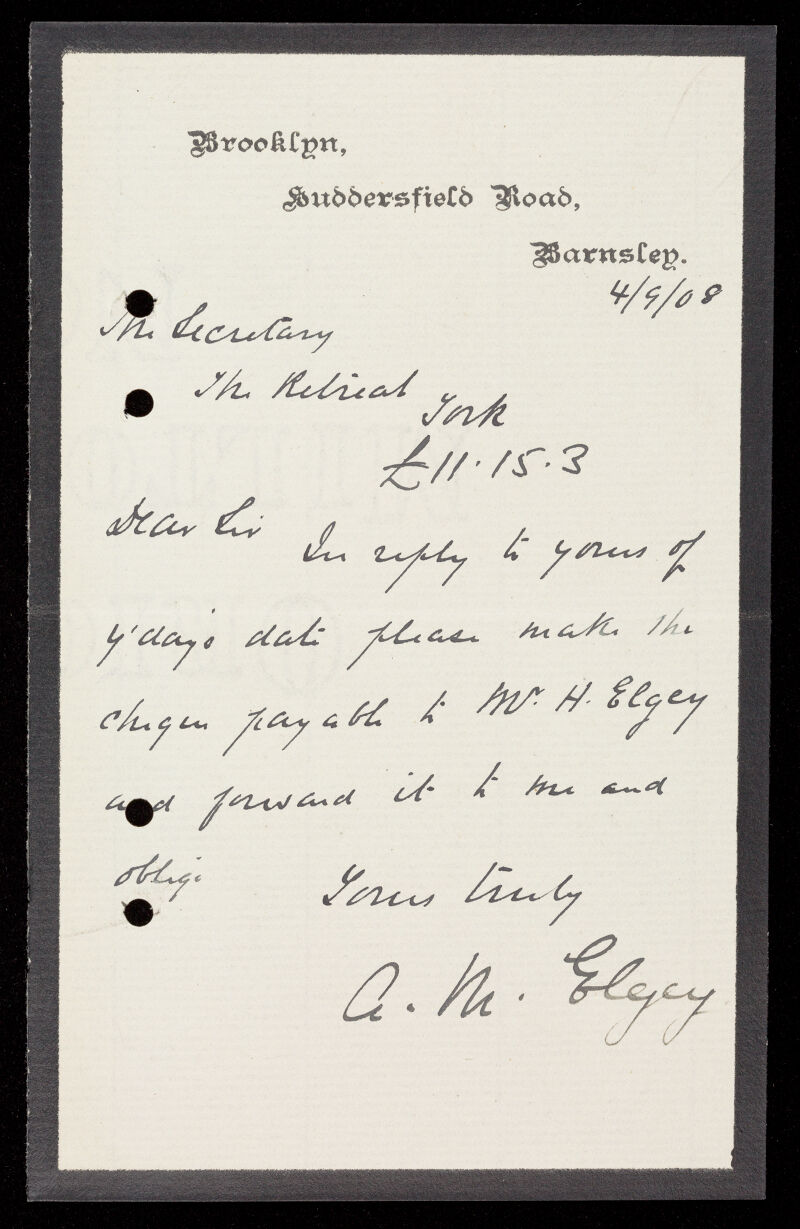 Brooklyn,
Huddersfield Road,
Barnsley.
4/9/08
The Secretary
The Retreat
York
£11.15.3
Dear Sir
In reply to yours of
y'day's date please make the
cheque payable to Mr. H. Elgey
and forward it to me and
oblige
Yours truly
A. M. Elgey